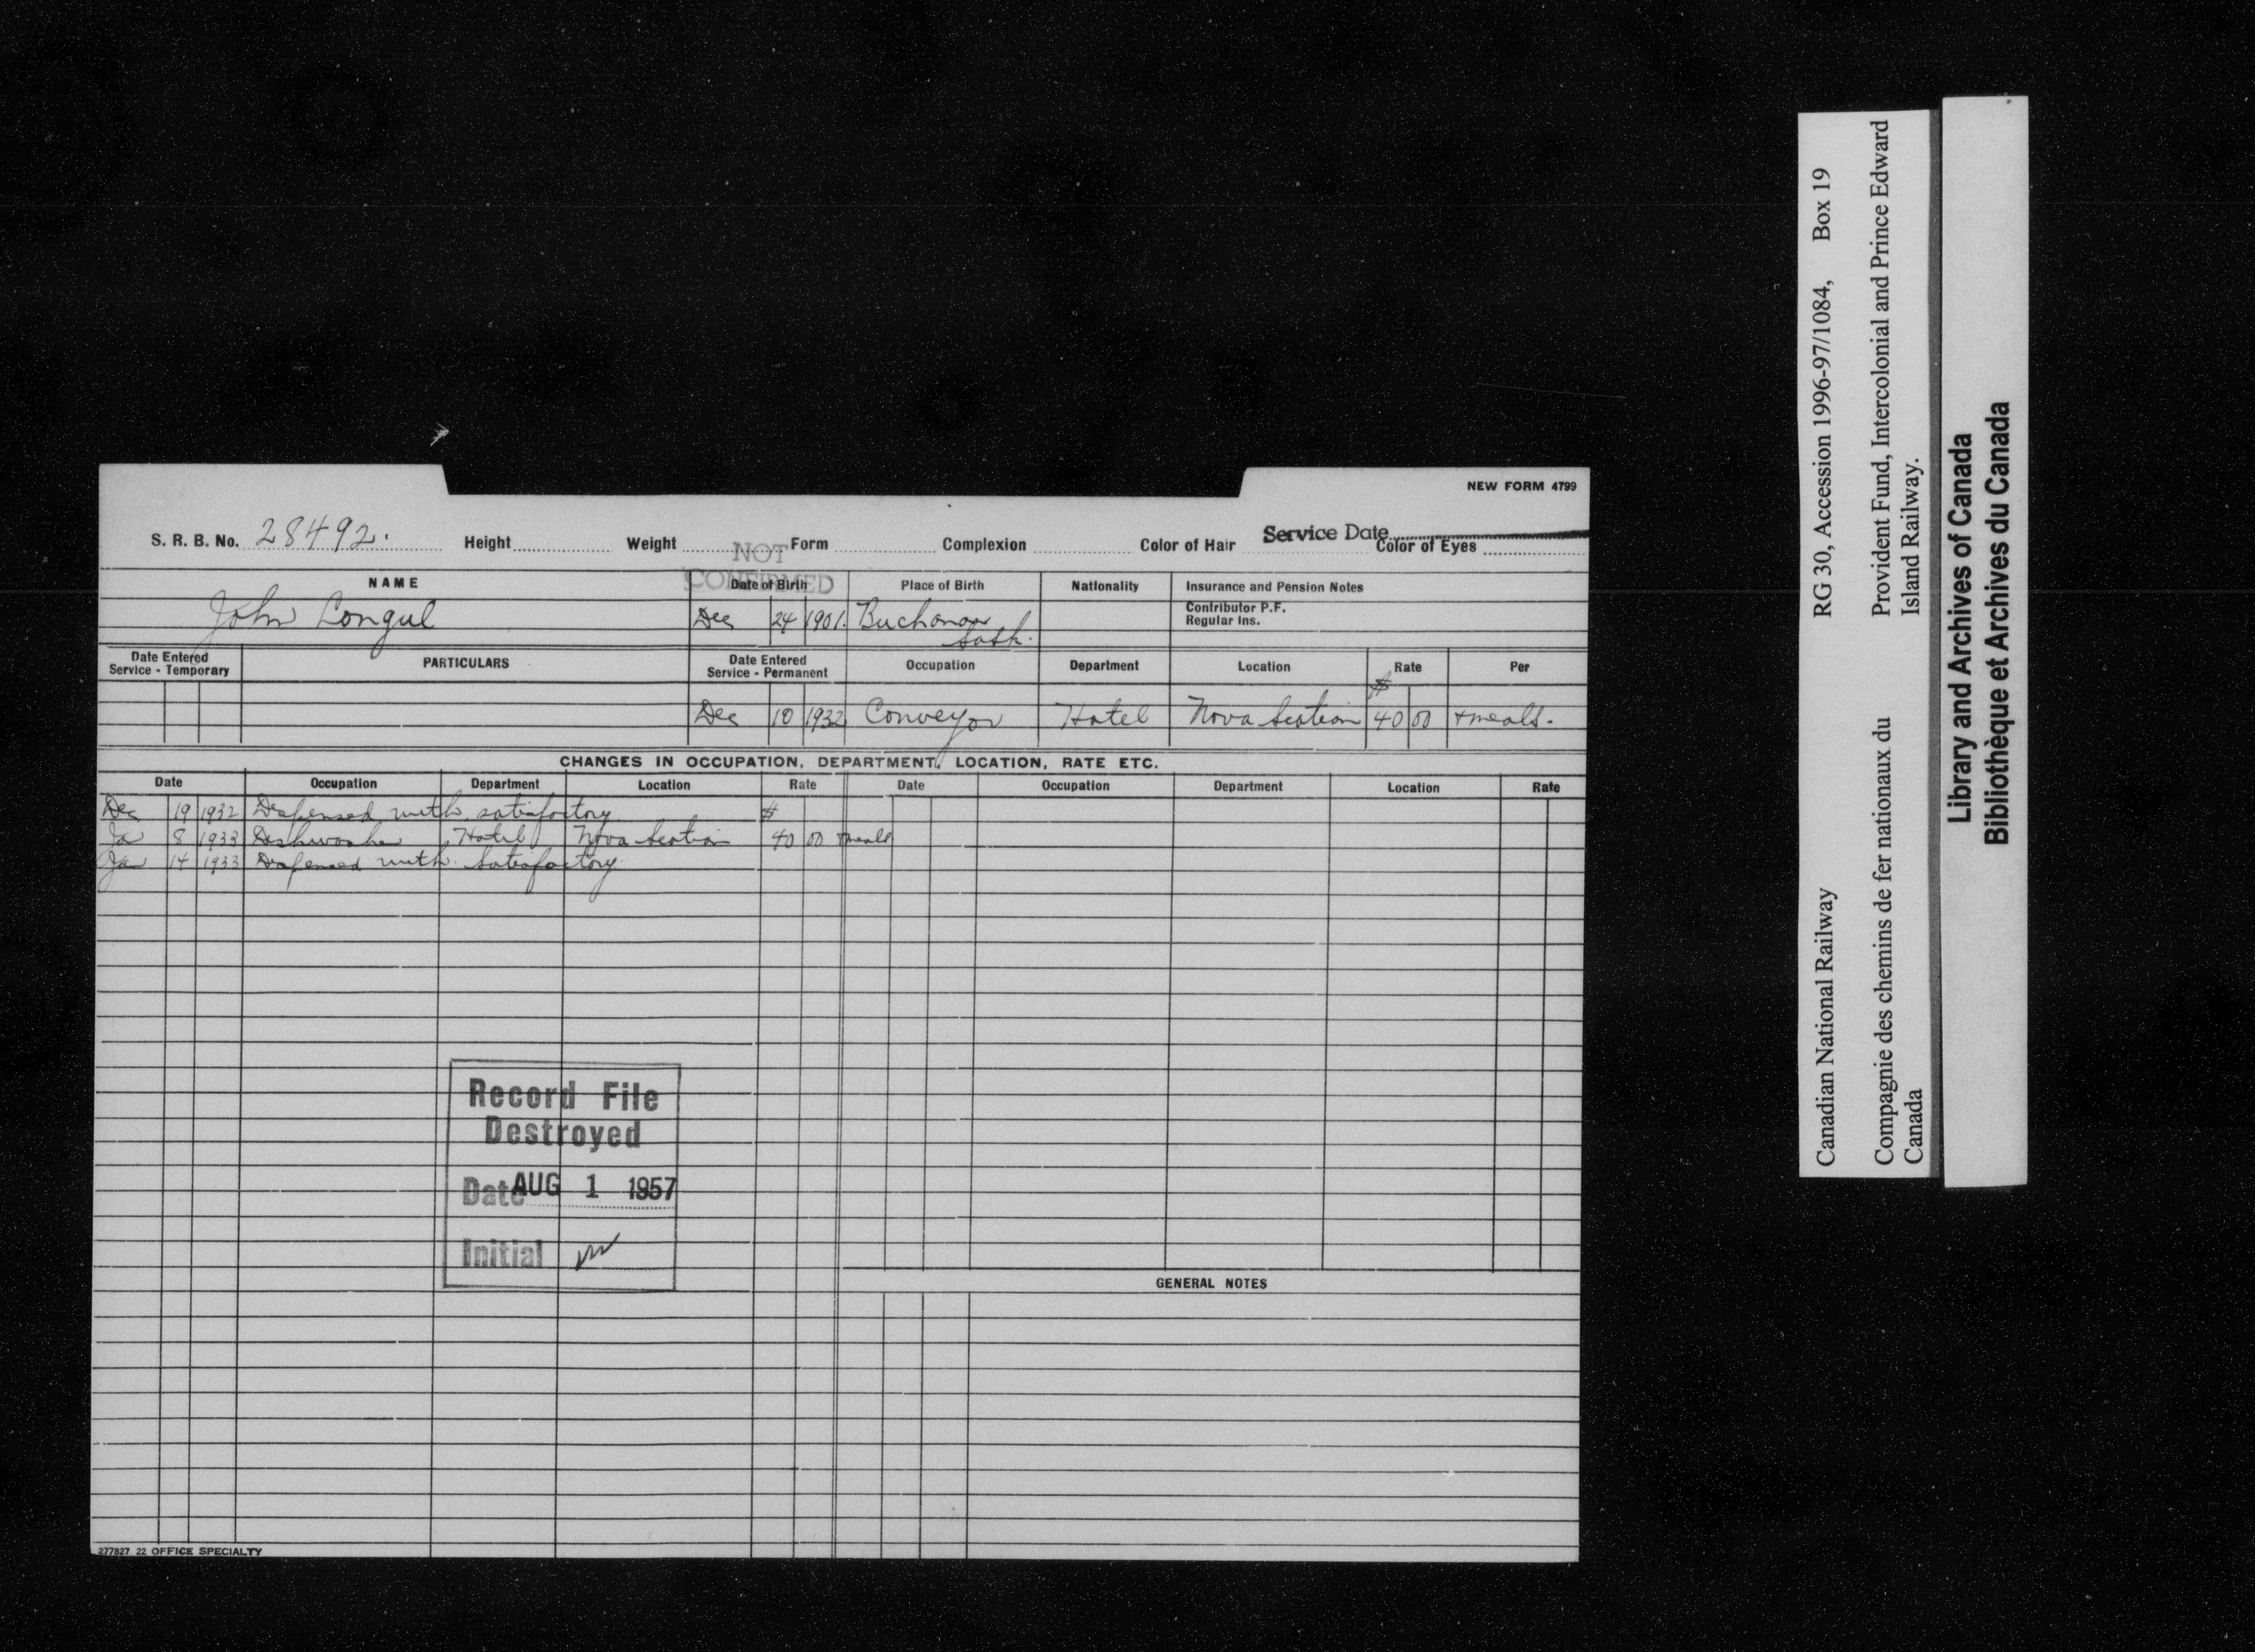 NEW FORM 4799
S. R. B. No. 28492. Height Weight Form Complexion Color of Hair Service Date Color of Eyes
NOT CONFIRMED
NAME Date of Birth Place of Birth Nationality Insurance and Pension Notes
Contributor P.F.
Regular Ins.
John Longul Dec 24 1901. Buchanan Sask.
Date Entered Service - Temporary PARTICULARS Date Entered Service - Permanent Occupation Department Location Rate Per
$
Dec 10 1932 Conveyor Hotel Nova Scotian 40 00 +meals.
CHANGES IN OCCUPATION, DEPARTMENT, LOCATION, RATE ETC.
Date Occupation Department Location Rate Date Occupation Department Location Rate
Dec 19 1932 Dispensed with satisfactory $
Ja 8 1933 Dishwasher Hotel Nova Scotian 40 00 +meals
Ja 14 1933 Dispensed with Satisfactory.
Record File
Destroyed
Date AUG 1 1957
Initial
GENERAL NOTES
277827 22 OFFICE SPECIALTY
Canadian National Railway RG 30, Accession 1996-97/1084, Box 19
Compagnie des chemins de fer nationaux du Provident Fund, Intercolonial and Prince Edward
Canada Island Railway.
Library and Archives of Canada
Bibliothèque et Archives du Canada